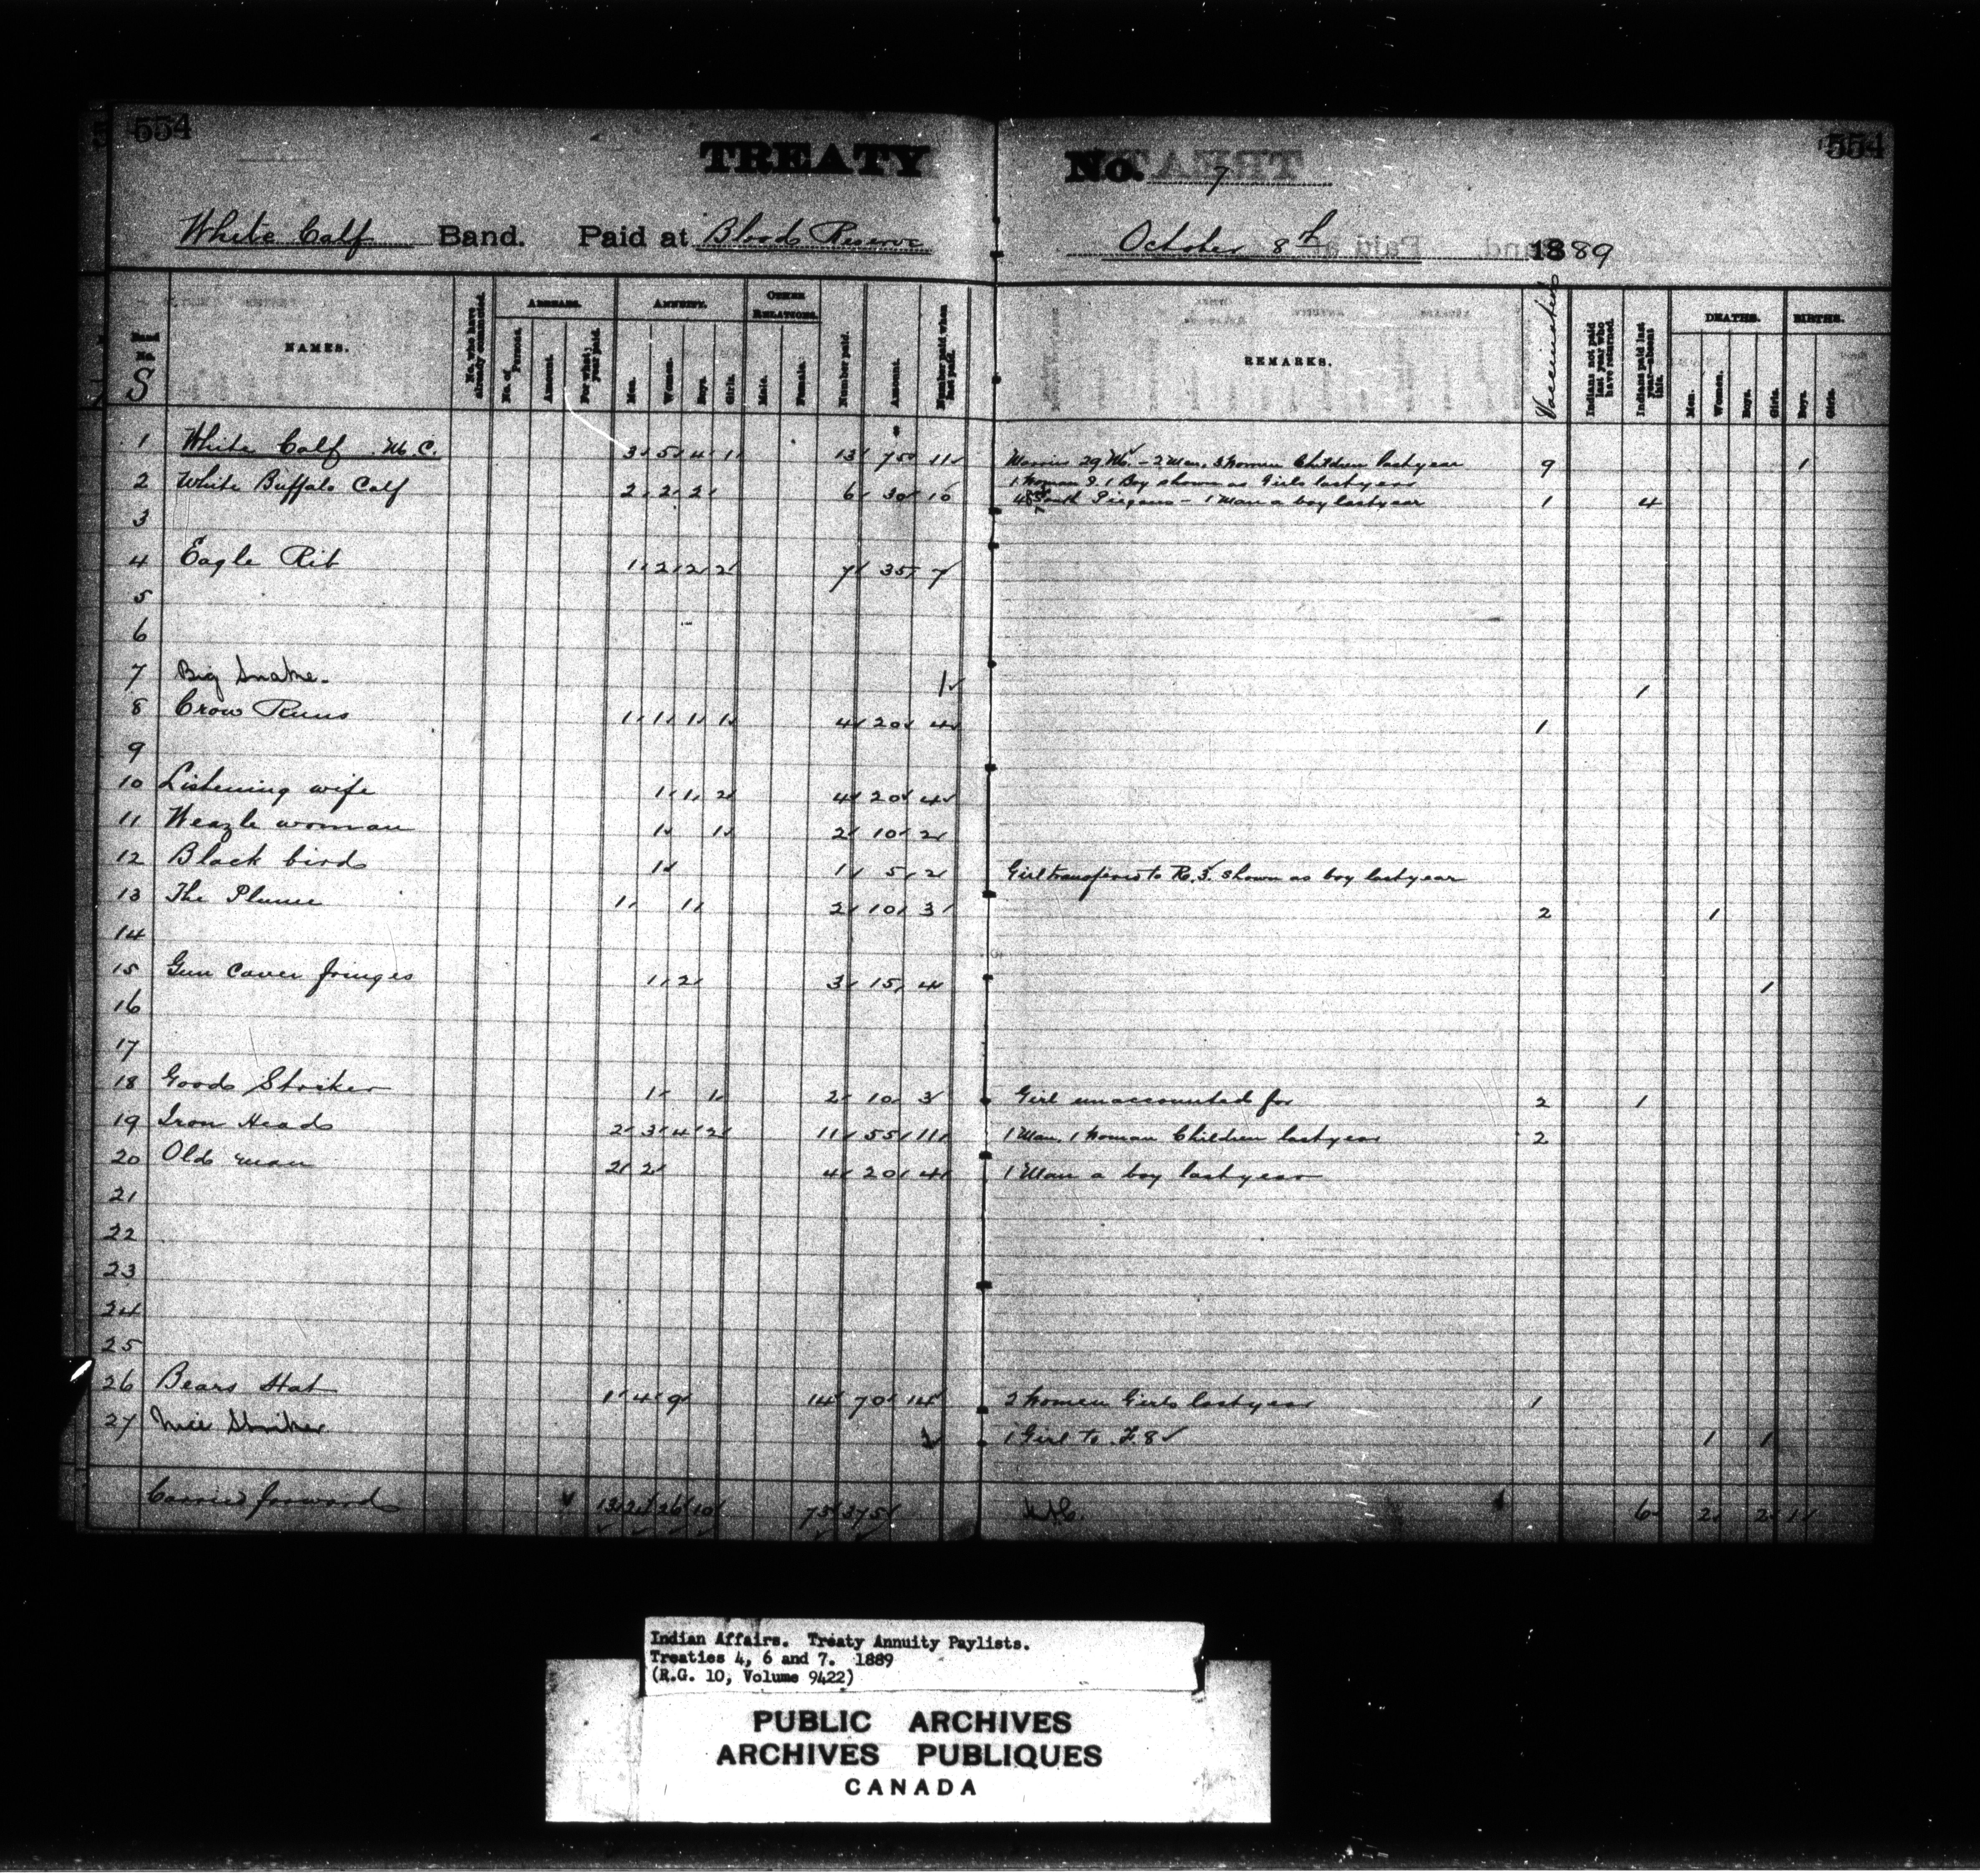 554
554
TREATY No. 7
White Calf Band. Paid at Bloods Reserve October 8th 1889
Band No.
S
NAMES.
No. who have already commuted.
ARREARS.
No. of Persons.
Amount.
For what year paid.
ANNUITY.
Men.
Women.
Boys.
Girls.
OTHER RELATIONS.
Male.
Female.
Number paid.
Amount.
Number paid when last paid.
REMARKS.
Vaccinated
Indians not paid last year who have returned.
Indians paid last year—absent this.
DEATHS.
Men.
Women.
Boys.
Girls.
BIRTHS.
Boys.
Girls.
1 White Calf M.C. 3 5 4 1 13 75 11 Marries 29 M. - 2 Men, 3 Women Children last year 9 1
1 Woman & 1 Boy shown as Girls last year
2 White Buffalo Calf 2 2 2 6 30 10 South Piegans - 1 Man a boy last year 1 4
3
4 Eagle Rib 1 2 2 2 7 35 7
5
6
7 Big Snake. 1 1
8 Crow Runs 1 1 1 1 4 20 4 1
9
10 Listening wife 1 1 2 4 20 4
11 Weazle woman 1 1 2 10 2
12 Black bird 1 1 5 2 Girl transferred to R. 5. shown as boy last year
13 The Plume 1 1 2 10 3 2 1
14
15 Gun Cover fringes 1 2 3 15 4 1
16
17
18 Goods Striker 1 1 2 10 3 Girl unaccounted for 2 1
19 Iron Head 2 3 4 2 11 55 11 1 Man, 1 Woman Children last year 2
20 Old man 2 2 4 20 4 1 Man a boy last year
21
22
23
24
25
26 Bears Hat 1 4 9 14 70 14 2 Women Girls last year 1
27 Nice Striker 1 Girl to F. 8 1 1
Carried forward 13 26 10 75 375 6 2 2 1
Indian Affairs. Treaty Annuity Paylists.
Treaties 4, 6 and 7. 1889
(R.G. 10, Volume 9422)
PUBLIC ARCHIVES
ARCHIVES PUBLIQUES
CANADA